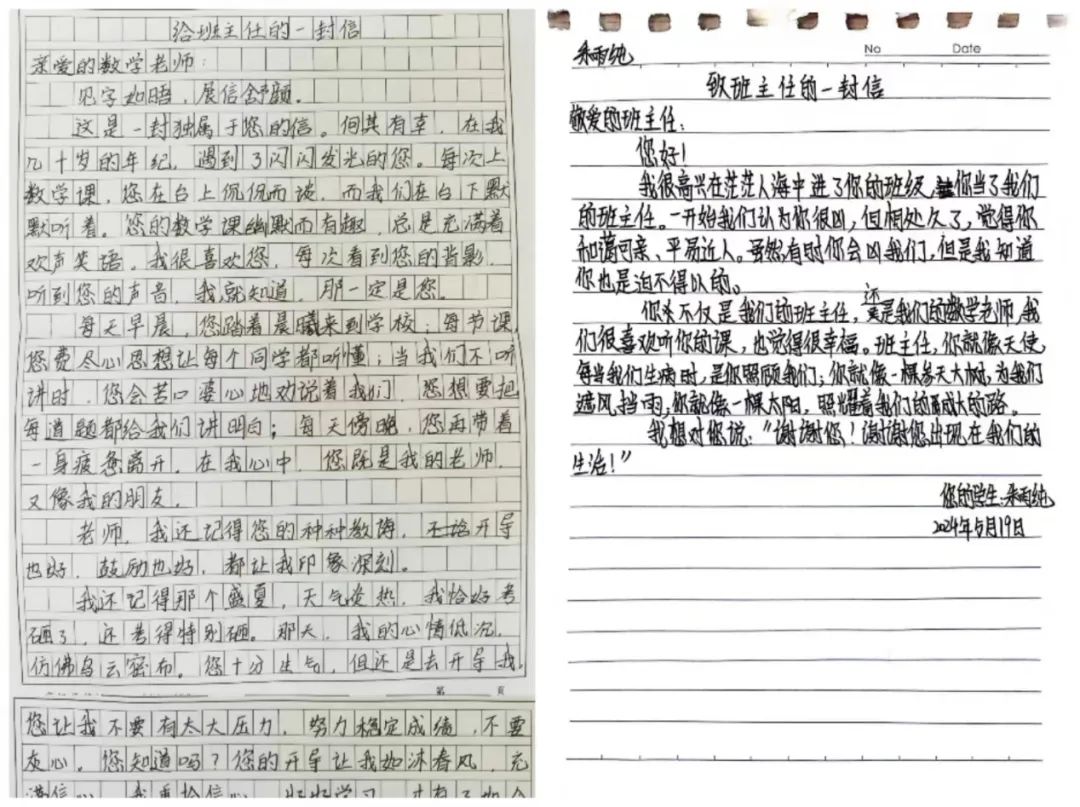 给班主任的一封信
亲爱的数学老师:
见字如晤,展信舒颜。
这是一封独属于您的信。何其有幸,在我
几十岁的年纪,遇到了闪闪发光的您。每次上
数学课,您在台上侃侃而谈,而我们在台下默
默听着。您的数学课幽默而有趣,总是充满着
欢声笑语。我很喜欢您,每次看到您的背影,
听到您的声音,我就知道,那一定是您。
每天早晨,您踏着晨曦来到学校;每节课,
您费尽心思想让每个同学都听懂;当我们不听
讲时,您会苦口婆心地劝说着我们,您想要把
每道题都给我们讲明白;每天傍晚,您再带着
一身疲惫离开。在我心中,您既是我的老师,
又像我的朋友。
老师,我还记得您的种种教诲,开导
也好,鼓励也好,都让我印象深刻。
我还记得那个盛夏,天气炎热,我恰好考
砸了,还考得特别砸。那天,我的心情低沉,
仿佛乌云密布。您十分生气,但还是去开导我,
第 页
您让我不要有太大压力,努力稳定成绩,不要
灰心。您知道吗?您的开导让我如沐春风,充
满信心,我重拾信心,好好学习,才有了如今
朱雨纯
No Date
致班主任的一封信
敬爱的班主任:
您好!
我很高兴在茫茫人海中进了你的班级,你当了我们
的班主任。一开始我们认为你很凶,但相处久了,觉得你
和蔼可亲、平易近人。虽然有时你会凶我们,但是我知道
你也是迫不得以的。
你不仅是我们的班主任,还是我们的数学老师,我
们很喜欢听你的课,也觉得很幸福。班主任,你就像天使,
每当我们生病时,是你照顾我们;你就像一棵参天大树,为我们
遮风挡雨,你就像一棵太阳,照耀着我们的大的路。
我想对您说:“谢谢您!谢谢您出现在我们的
生活!”
您的学生:朱雨纯
2024年5月19日